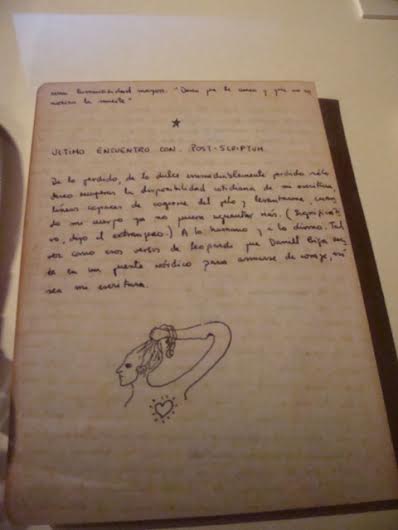 mayor. "
la muerte"
ULTIMO ENCUENTRO CON POST-SCRIPTUM
De lo perdido, de lo dulce irremediablemente perdido sólo
deseo recuperar la disponibilidad cotidiana de mi escritura,
líneas capaces de cogerme del pelo y levantarme, cuan
do mi cuerpo ya no quiera aguantar más. (Significati
vo, dijo el extranjero.) A lo humano y a lo divino. Tal
vez como esos versos de leopardi que Daniel Biga reci
ta en un puente nórdico para armarse de coraje, así
sea mi escritura.